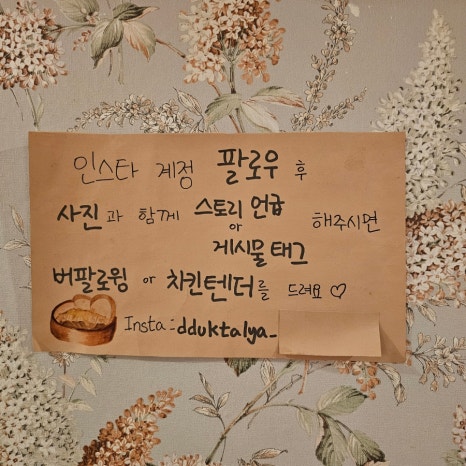 인스타 계정 팔로우 후
사진과 함께 스토리 언급 해주시면
or
게시물 태그
버팔로윙 or 치킨텐더를 드려요♡
Insta : dduktalya_